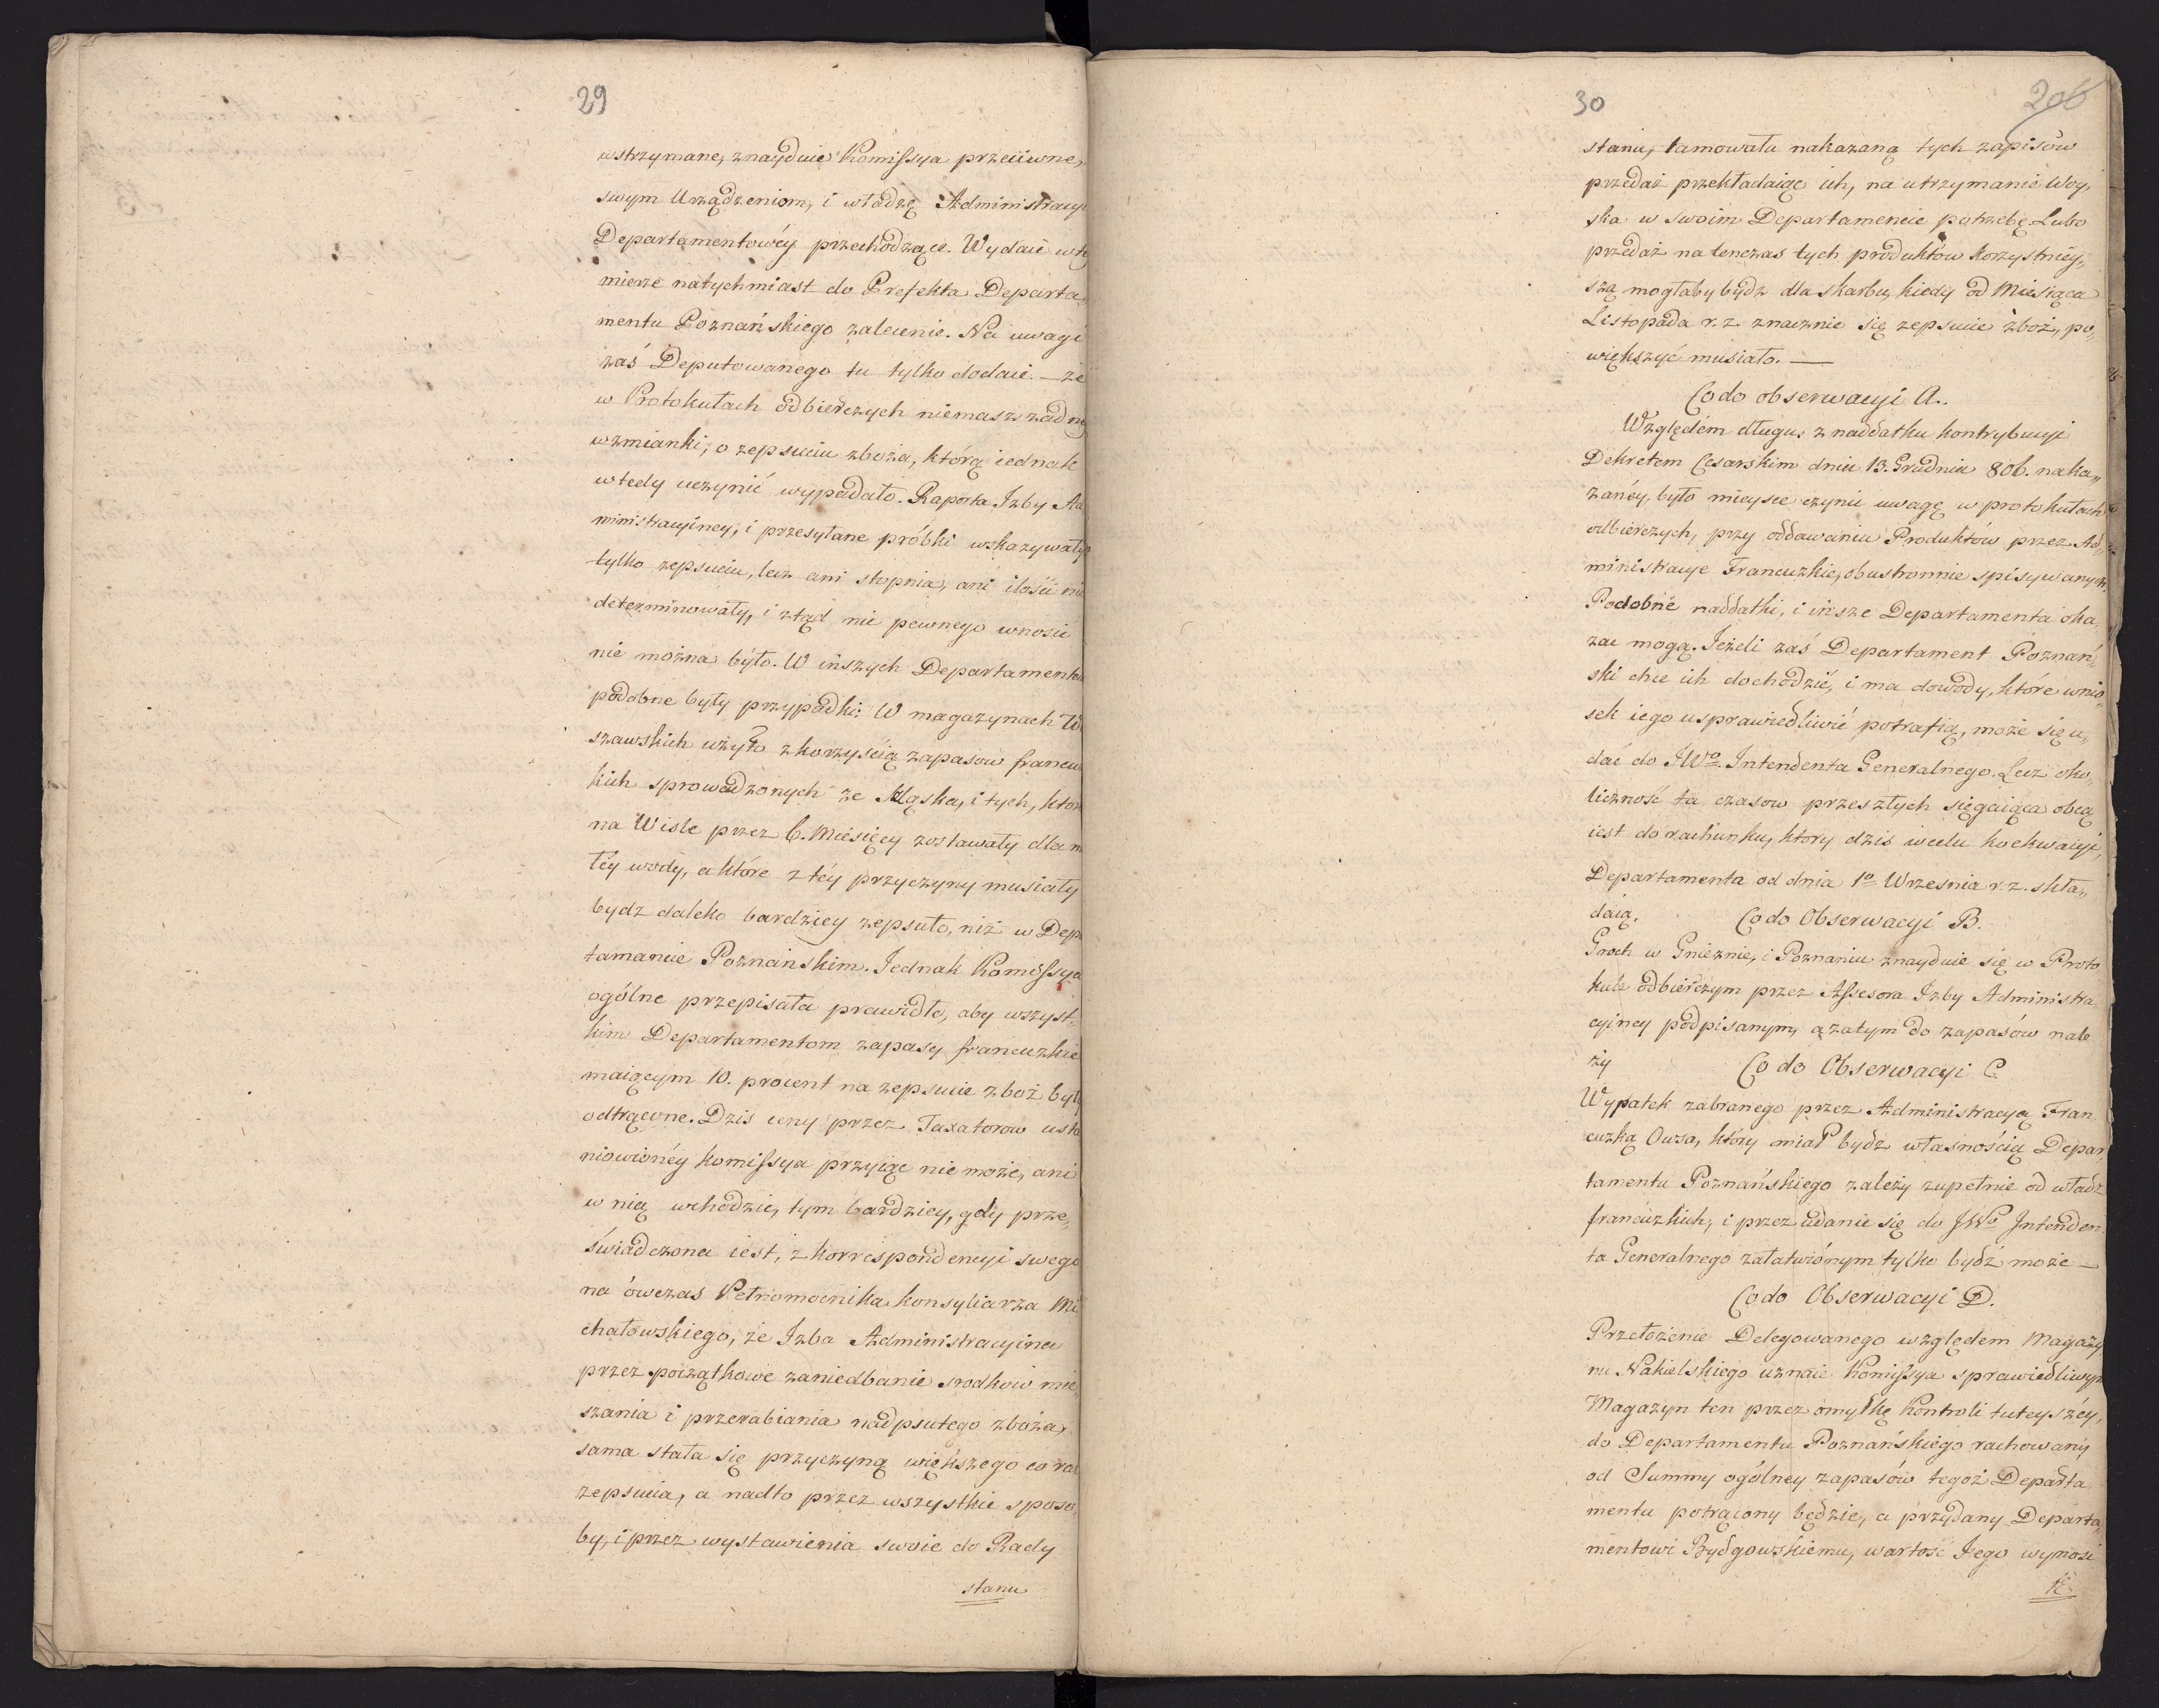 29
wstrzymane, znayduie Komissya przeciwne,
swym Urządzeniom, i władzę Administracyi
Departamentowéy przechodzące. Wydaie w téy
mierze natychmiast do Prefekta Departa„
mentu Poznańskiego zalecenie. Na uwagi
zaś Deputowanego tu tylko dodaie. — że
w Protokułach odbierczych niemasz żadny
wzmianki, o zepsuciu zboża, którą iednak
wtedy uczynić wypadało. Raporta Izby Ad
ministracyiney, i przesyłane próbki wskazywały
tylko zepsucie, lecz ani stopnia, ani ilości nie
determinowały, i ztąd nic pewnego wnosić
nie można było. W inszych Departamenta
podobne były przypadki: W magazynach W
szawskich użyto z korzyścią zapasow francu
kich sprowadzonych ze Sląska, i tych, które
na Wisle przez 6. Miesięcy zostawały dla m
łéy wody, a które z téy przyczyny musiały
bydz daleko bardziey zepsute, niż w Dep
tamancie Poznanskim. Jednak Komissya
ogólne przepisała prawidło, aby wszyst„
kim Departamentom zapasy francuzkie
maiącym 10. procent na zepsucie zboż były
odtrącone. Dzis ceny przez Taxatorow usta
niowionéy Komissya przyiąc nie może, ani
w nią wchodzic, tym bardziey, gdy prze„
świadczona iest, z korrespondencyi swego
na ówczas Pełnomocnika konsyliarza Mi
chałowskiego, że Izba Administracyina
przez początkowe zaniedbanie srodkow mie„
szania i przerabiania nadpsutego zboża,
sama stała się przyczyną większego co raz
zepsucia, a nadto przez wszystkie sposo„
by, i przez wystawienia swoie do Rady
stanu
30
206
stanu, tamowała nakazaną tych zapisów
przedaż przekładaiąc ich, na utrzymanie Woy„
ska w swoim Departamencie potrzebę. Lubo
przedaż natenczas tych produktów korzystniey„
szą mogłaby bydz dla skarbu, kiedy od Miesiąca
Listopada r. z. znacznie się zepsucie zboż, po„
większyć musiało. —
Co do obserwacyi A.
Względem długu z naddatku kontrybucyi
Dekretem Cesarskim dniu 13. Grudnia 806. naka„
zanéy, było mieysce czynić uwagę w protokułach
odbierczych, przy oddawaniu Produktów przez Ad„
ministracye Francuzkie, obustronnie spisywanych.
Podobne naddatki, i insze Departamenta oka
zac mogą. Jeżeli zaś Departament Poznań„
ski chce ich dochodzić, i ma dowody, które wnio„
sek iego usprawiedliwić potrafią, może się u„
dać do JWo. Intendenta Generalnego. Lecz oko„
liczność ta czasow przeszłych sięgaiąca obcą
iest do rachunku, ktory dzis w celu koekwacyi,
Departamenta od dnia 1o Wrzesnia r. z. skła„
daią.
Co do Obserwacyi B.
Groch w Gnieznie, i Poznaniu znayduie się w Proto
kule odbierczym przez Assesora Izby Administra
cyiney podpisanym, a zatym do zapasów nale
ży
Co do Obserwacyi C.
Wypatek zabranego przez Administracyą Fran„
cuzką Owsa, który miał bydz własnością Depar„
tamentu Poznańskiego zależy zupełnie od władz
francuzkich, i przez udanie się do JWo Intenden
ta Generalnego załatwiónym tylko bydź może —
Co do Obserwacyi D.
Przełożenie Delegowanego względem Magazy
nu Nakielskiego uznaie Komissya sprawiedliwym
Magazyn ten przez omyłkę Kontroli tuteyszéy,
do Departamentu Poznańskiego rachowany
od Summy ogólney zapasów tegoż Departa
mentu potrącony będzie, a przydany Departa„
mentowi Bydgowskiemu, wartość Jego wynosi